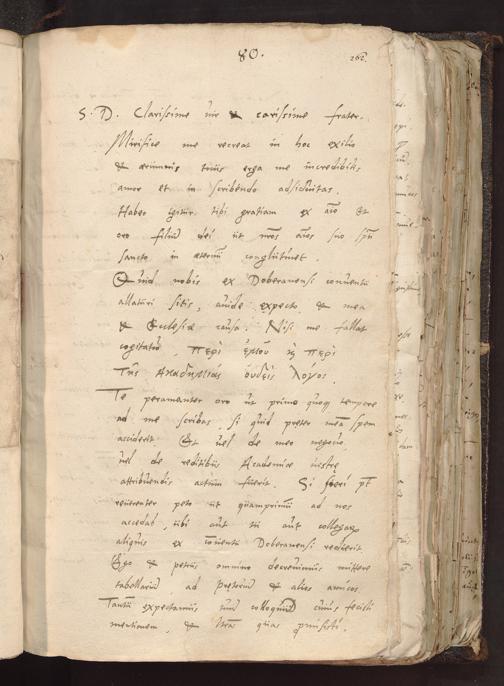 80.
262.
S. D. Clarissime vir & carissime frater.
Mirifice me recreat in hoc exilio
& ærumnis tuus erga me incredibilis
amor et in scribendo adsiduitas.
Habeo igitur tibi gratiam ex aĩo et
oro filiũ dei ut nr̃os aĩos suo spũ
sancto in æternũ conglutinet.
Quid nobis ex Doberanensi conuentu
allaturi sitis, auide expecto, & mea
& Ecclesiæ causa. Nisi me fallat
cogitatio, περὶ ἐμοῦ ἢ περὶ
τῆς Ἀκαδημίας οὐδεὶς λόγος.
Te peramanter oro ut primo quoq tempore
ad me scribas, si quid preter meã spem
acciderit et uel de meo negocio,
uel de reditibus Academiæ uestræ
attribuendis actum fuerit. Si fieri pt
reuerenter peto ut quamprimũ ad nos
accedas, ubi aut tu aut collegaꝝ
aliquis ex conuentu Doberanensi redierit.
Ego & petrus omnino decreuimus mittere
tabellariũ, ad præceptorẽ & alios amicos.
Tantũ expectamus tuũ colloquiũ cuius fecisti
mentionem, & lr̃as quas promisisti.